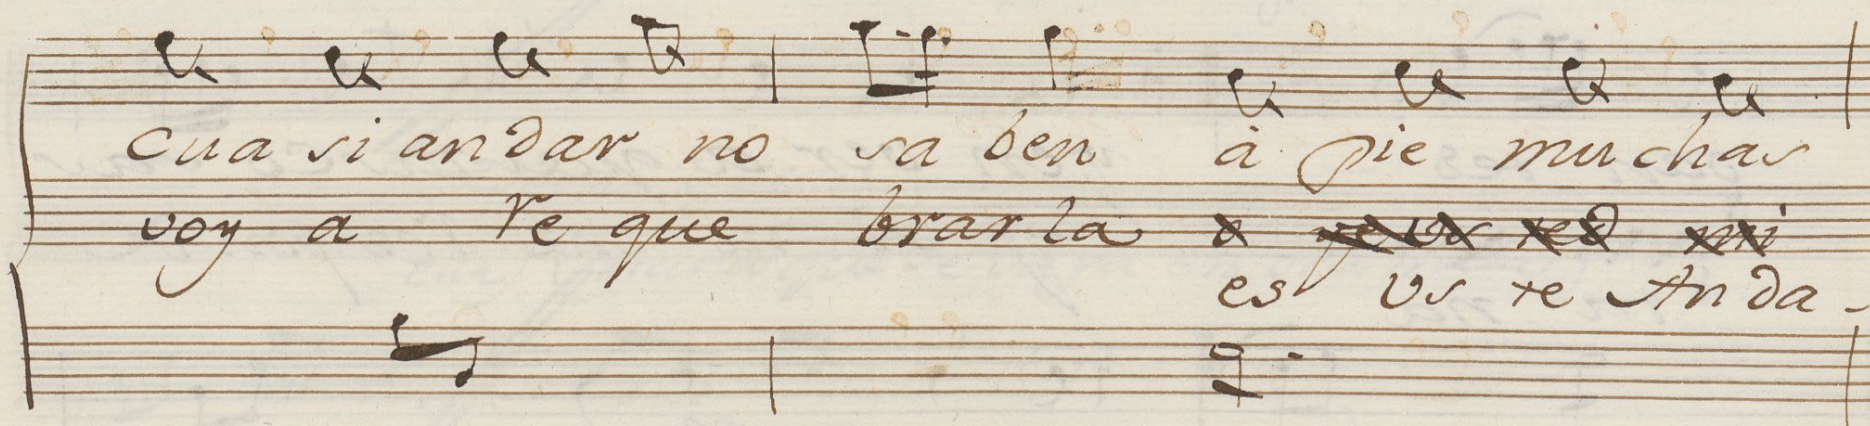 cua si an dar no sa ben à pie muchas
voy a re que brar la
es us te An da